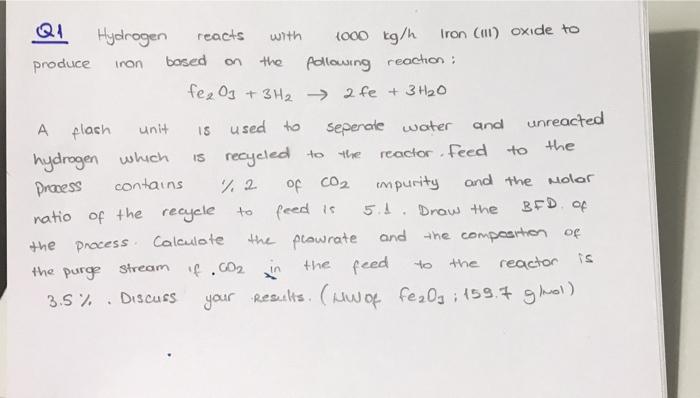 Q1 Hydrogen reacts with 1000 kg/h Iron (III) oxide to
produce iron based on the following reaction :
fe2O3 + 3H2 → 2 fe + 3H2O
A flash unit is used to seperate water and unreacted
hydrogen which is recycled to the reactor. feed to the
Process contains % 2 of CO2 impurity and the Molar
ratio of the recycle to feed is 5.1. Draw the BFD. of
the process. Calculate the flowrate and the composition of
the purge stream if .CO2 in the feed to the reactor is
3.5 %. Discuss your Results. (MW of Fe2O3 ; 159.7 g/mol)